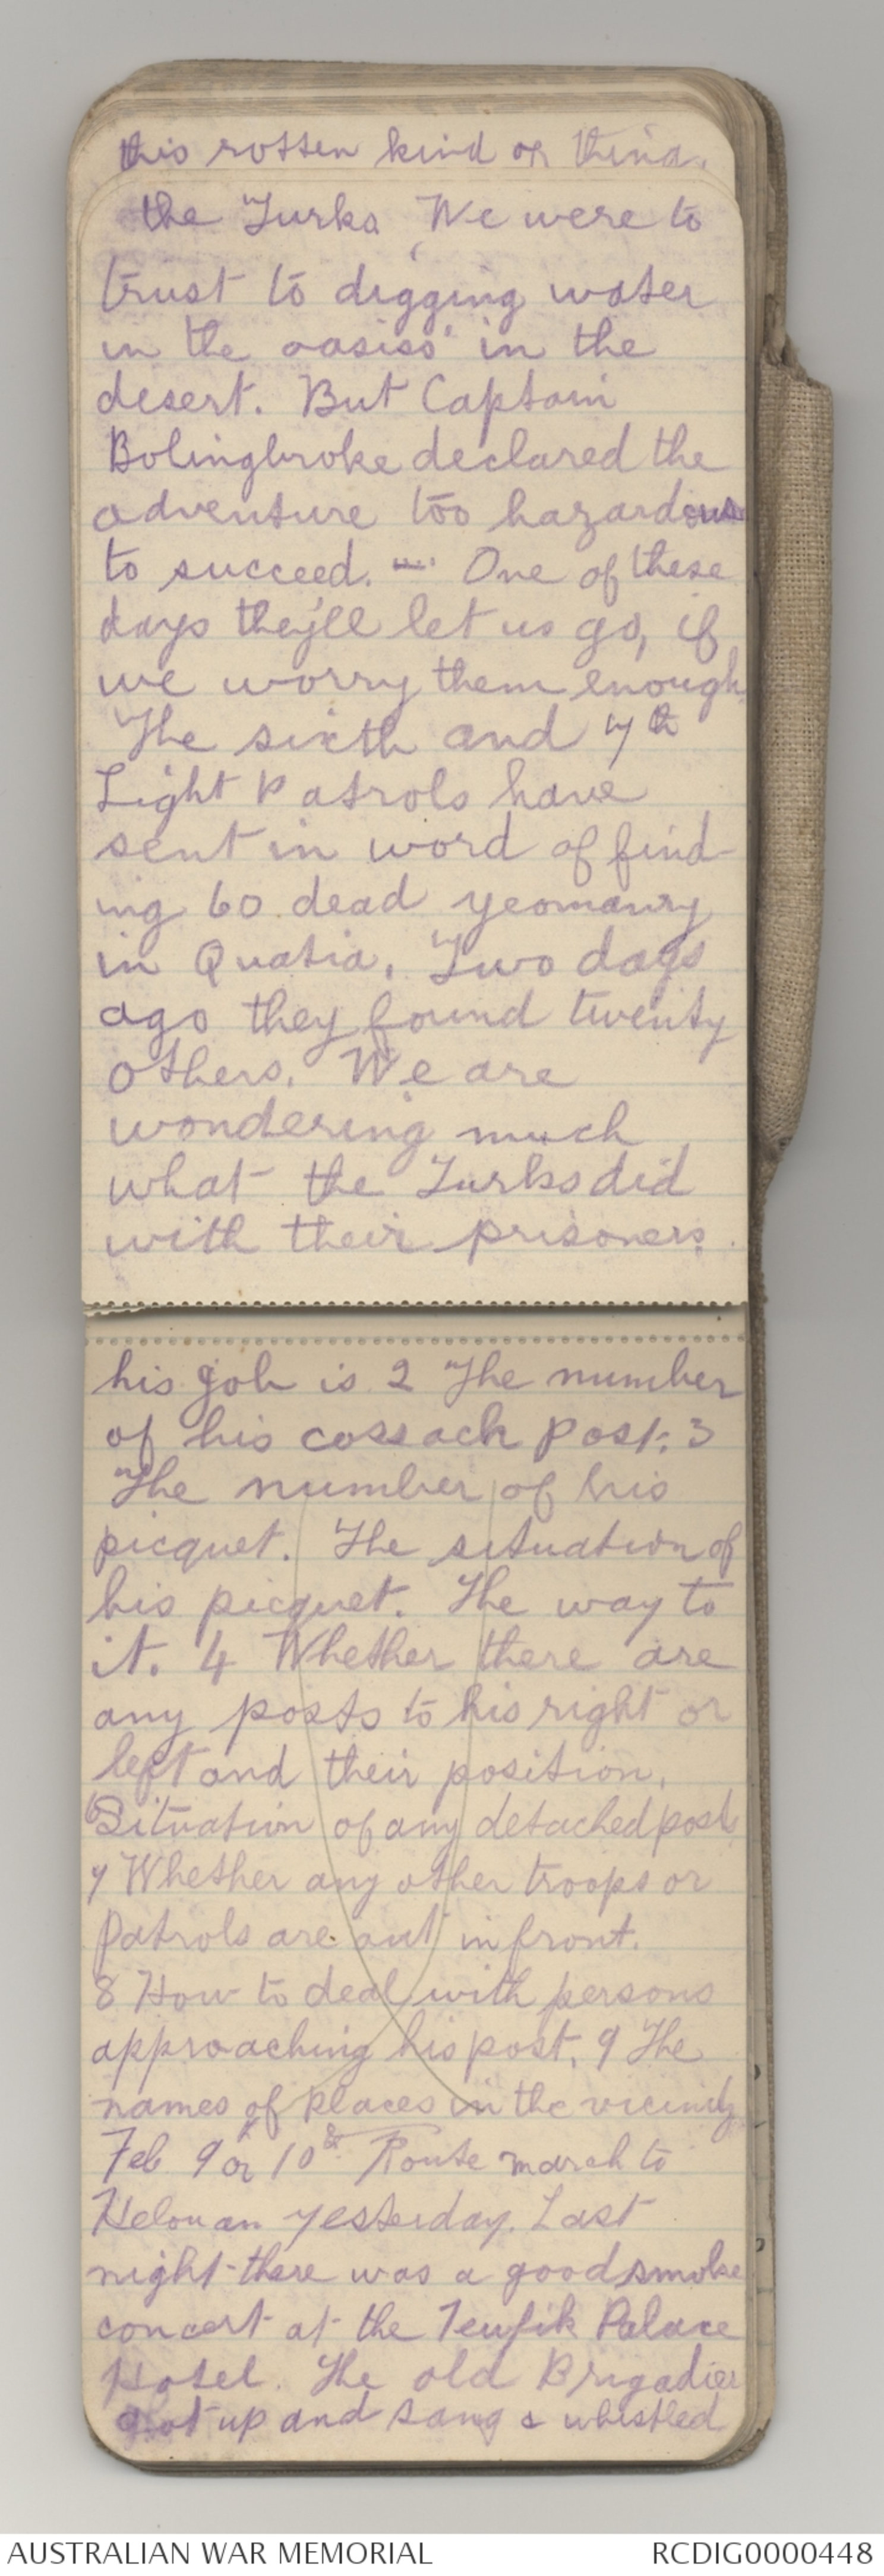 this rotten kind of thing.
the Turks. We were to
trust to digging water
in the oasiss' in the
desert. But Captain
Bolingbroke declared the
adventure too hazardous
to succeed. — One of these
days they'll let us go, if
we worry them enough.
The sixth and 7th
Light Patrols have
sent in word of find-
ing 60 dead yeomanry
in Quatia. Two days
ago they found twenty
others. We are
wondering much
what the Turks did
with their prisoners.
his job is 2 The number
of his cossack post. 3
The number of his
picquet. The situation of
his picquet. The way to
it. 4 Whether there are
any posts to his right or
left and their position.
6 Situation of any detached posts
7 Whether any other troops or
patrols are out in front.
8 How to deal with persons
approaching his post. 9 The
names of places in the vicinity
Feb 9 or 10th Route march to
Helouan yesterday. Last
night there was a good smoke
concert at the Tewfik Palace
Hotel. The old Brigadier
got up and sang & whistled
AUSTRALIAN WAR MEMORIAL
RCDIG0000448